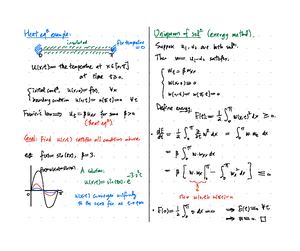 Heat eqn example:
insulated
fix temperature
= 0
u(x,t) = the temperature at x∈[0,π]
at time t≥0.
initial cond. u(x,0) = f(x), ∀x
boundary condition u(0,t) = u(π,t) = 0 ∀t
Fourier's law ⟹ u_t = β u_xx for some β>0
(heat eqn).
Goal: Find u(x,t) satisfies all conditions above
eg. f(x) = sin(3x), β = 3.
A solution:
u(x,t) converges uniformly
to the zero fcn as t→∞
Uniqueness of soln (energy method).
Suppose u₁, u₂ are both solns.
Then satisfies
u_t = β u_xx
u(x,0) = 0
u(0,t) = u(π,t) = 0
Define energy:
E(t) = ½ ∫₀^π u(x,t)² dx ≥ 0
dE/dt = ½ ∫₀^π ∂/∂t u² dx = ∫₀^π u u_t dx
= β ∫₀^π u·u_xx dx
= β [ u·u_x |₀^π − ∫₀^π u_x² dx ] ≤ 0
E(0) = ½ ∫₀^π 0 dx = 0 ⟹ E(t) = 0 ∀t